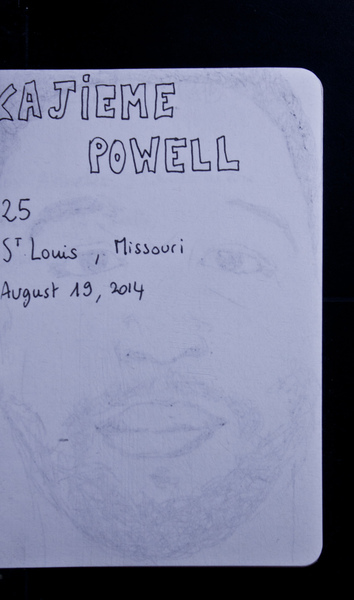 KAJIEME
POWELL
25
St Louis, Missouri
August 19, 2014